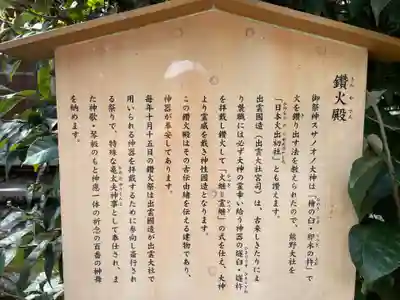 鑽火殿
さんかでん
御祭神スサノオノ大神は「檜の臼・卯木の杵」で
火を鑽り出す法を教えられたので、熊野大社を
「日本火出初社」とも讃えます。
出雲國造(出雲大社宮司)は、古来しきたりによ
り襲職には必ず大神の霊幸い給う神器の燧臼・燧杵
を拝戴し鑽火して「火継=霊継」の式を仕え、大神
より霊威を戴き神性國造となります。
この鑽火殿はその古伝由緒を伝える建物であり、
神器が奉安してあります。
毎年十月十五日の鑽火祭は出雲國造が出雲大社で
用いられる神器を拝戴するために参向し斎行され
る祭りで、特殊な亀太夫神事として奉仕され、ま
た神歌・琴板のもと神恩一体の祈念の百番の神舞
を納めます。